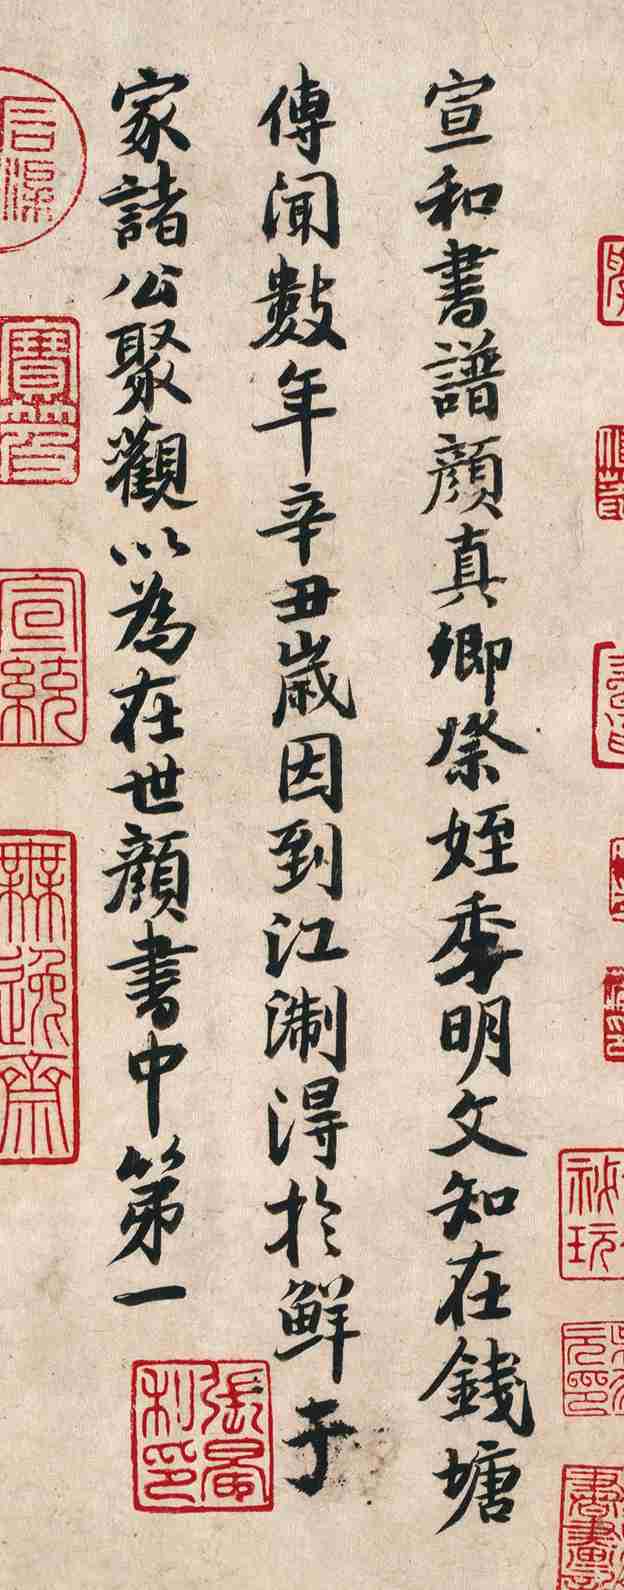 宣和書譜顔真卿祭姪季明文知在錢塘
傳聞數年辛丑歲因到江淛得於鮮于
家諸公聚觀以為在世顔書中第一
張晏私印
宣統
無逸齋